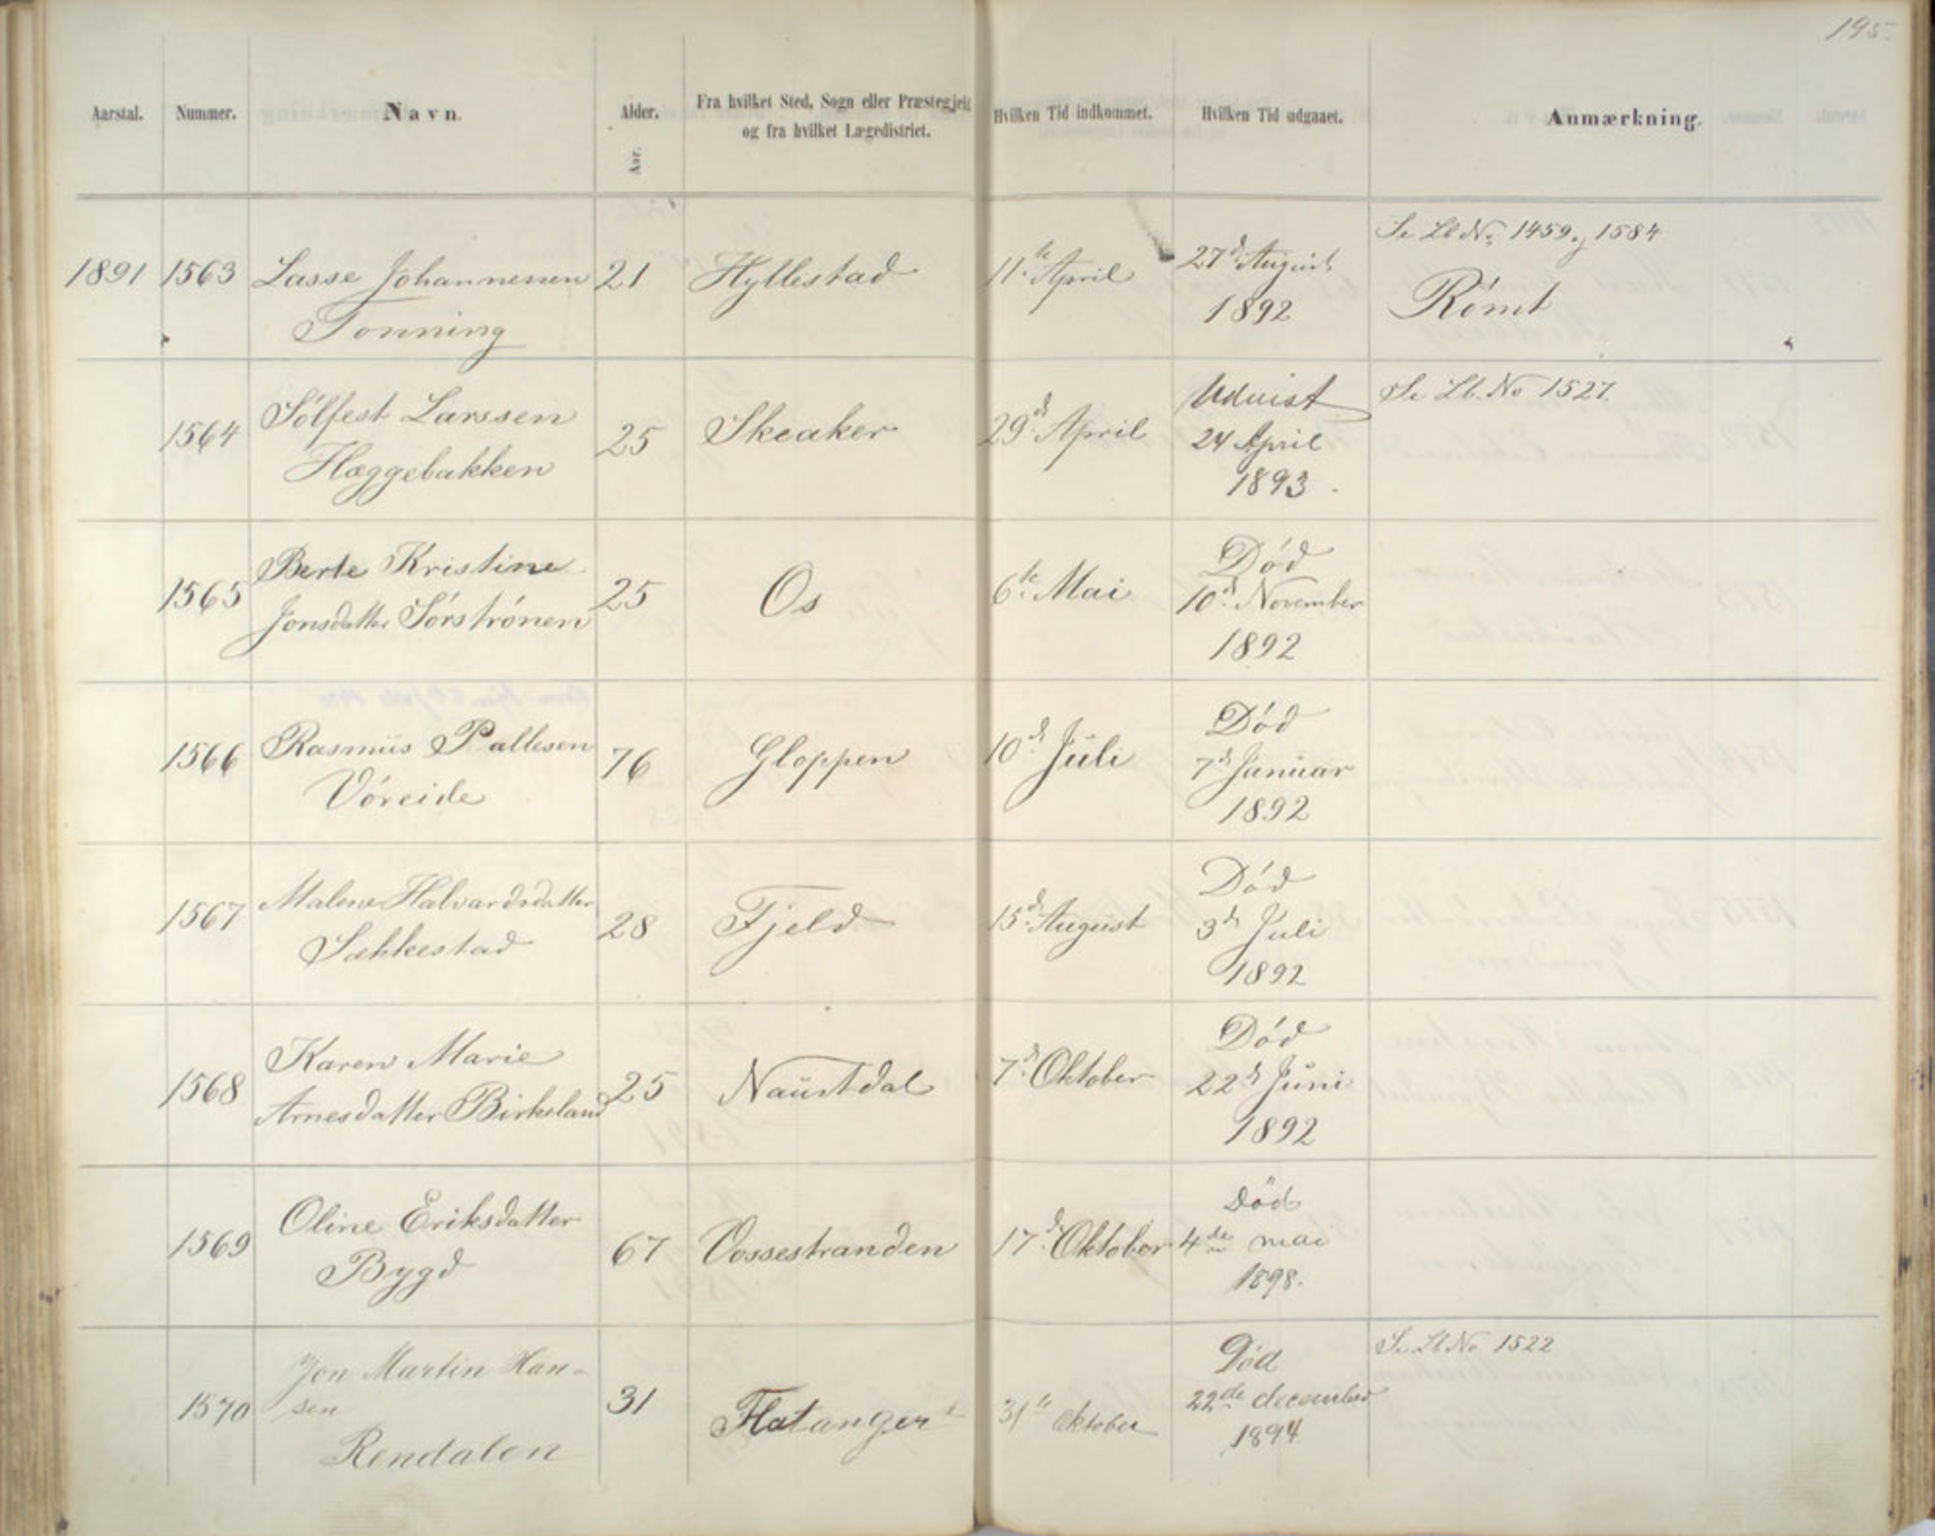 195.
Aarstal. Nummer. Navn. Alder. Fra hvilket Sted, Sogn eller Præstegjeld Hvilken Tid indkommet. Hvilken Tid udgaaet. Anmærkning.
og fra hvilket Lægedistrict.
Aar.
Se Lb No 1459 og 1584
1891 1563 Lasse Johannesen 21 Hyllestad 11te April 27de August
Tonning 1892 Römt
Udvist Se Lb. No 1527.
1564 Sölfest Larssen 25 Skeaker 29de April 24 April
Hæggebakken 1893.
Berte Kristine Död
1565 Jonsdatter Sörströnen 25 Os 6te Mai 10de November
1892
Död
1566 Rasmus Pallesen 76 Gloppen 10de Juli 7de Januar
Vöreide 1892
Död
1567 Malene Halvardsdatter 28 Fjeld 15de August 3de Juli
Sækkestad 1892
Karen Marie Död
1568 Arnesdatter Birkeland 25 Naustdal 7de Oktober 22de Juni
1892
Oline Eriksdatter Död
1569 Bygd 67 Vossestranden 17de Oktober 4de mai
1898.
Jon Martin Han- Död Se Lb No 1522
1570 sen 31 Flatanger 31te Oktober 22de december
Rendalen 1894